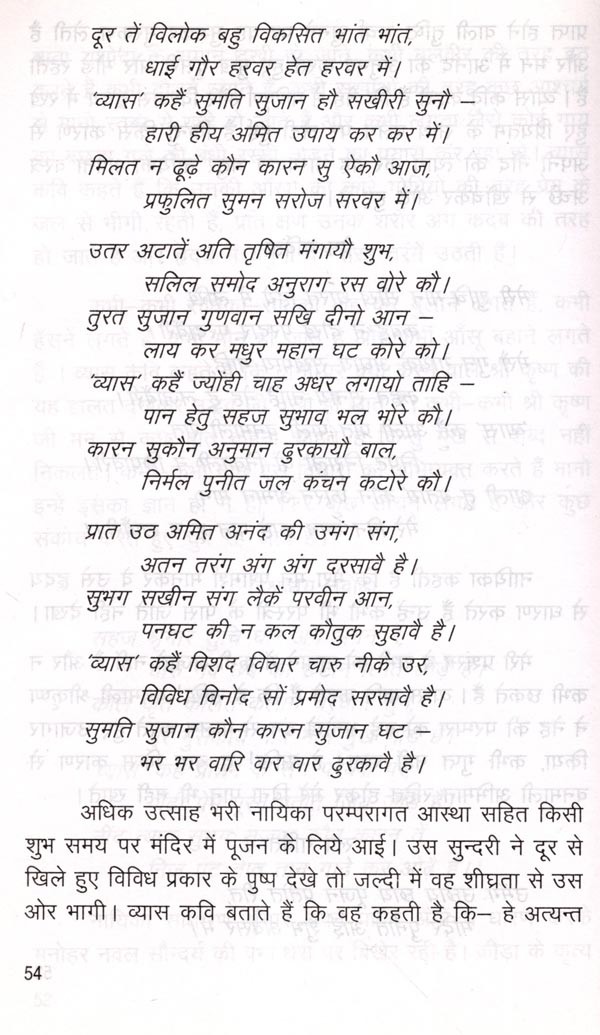 दूर तें विलोक बहु विकसित भांत भांत,
धाई गौर हरवर हेत हरवर में।
'व्यास' कहैं सुमति सुजान हौ सखीरी सुनौ –
हारी हीय अमित उपाय कर कर में।
मिलत न ढूढ़ै कौन कारन सु ऐकौ आज,
प्रफुलित सुमन सरोज सरवर में।
उतर अटातें अति तृषित मंगायौ शुभ,
सलिल समोद अनुराग रस वोरे कौ।
तुरत सुजान गुणवान सखि दीनो आन –
लाय कर मधुर महान घट कोरे को।
'व्यास' कहैं ज्योही चाह अधर लगायो ताहि –
पान हेतु सहज सुभाव भल भोरे कौ।
कारन सुकौन अनुमान ढुरकायौ बाल,
निर्मल पुनीत जल कंचन कटोरे कौ।
प्रात उठ अमित अनंद की उमंग संग,
अतन तरंग अंग अंग दरसावै है।
सुभग सखीन संग लैकें परवीन आन,
पनघट की न कल कौतुक सुहावै है।
'व्यास' कहैं विशद विचार चारु नीके उर,
विविध विनोद सों प्रमोद सरसावै है।
सुमति सुजान कौन कारन सुजान घट –
भर भर वारि वार वार ढुरकावै है।
अधिक उत्साह भरी नायिका परम्परागत आस्था सहित किसी
शुभ समय पर मंदिर में पूजन के लिये आई। उस सुन्दरी ने दूर से
खिले हुए विविध प्रकार के पुष्प देखे तो जल्दी में वह शीघ्रता से उस
ओर भागी। व्यास कवि बताते हैं कि वह कहती है कि– हे अत्यन्त
54